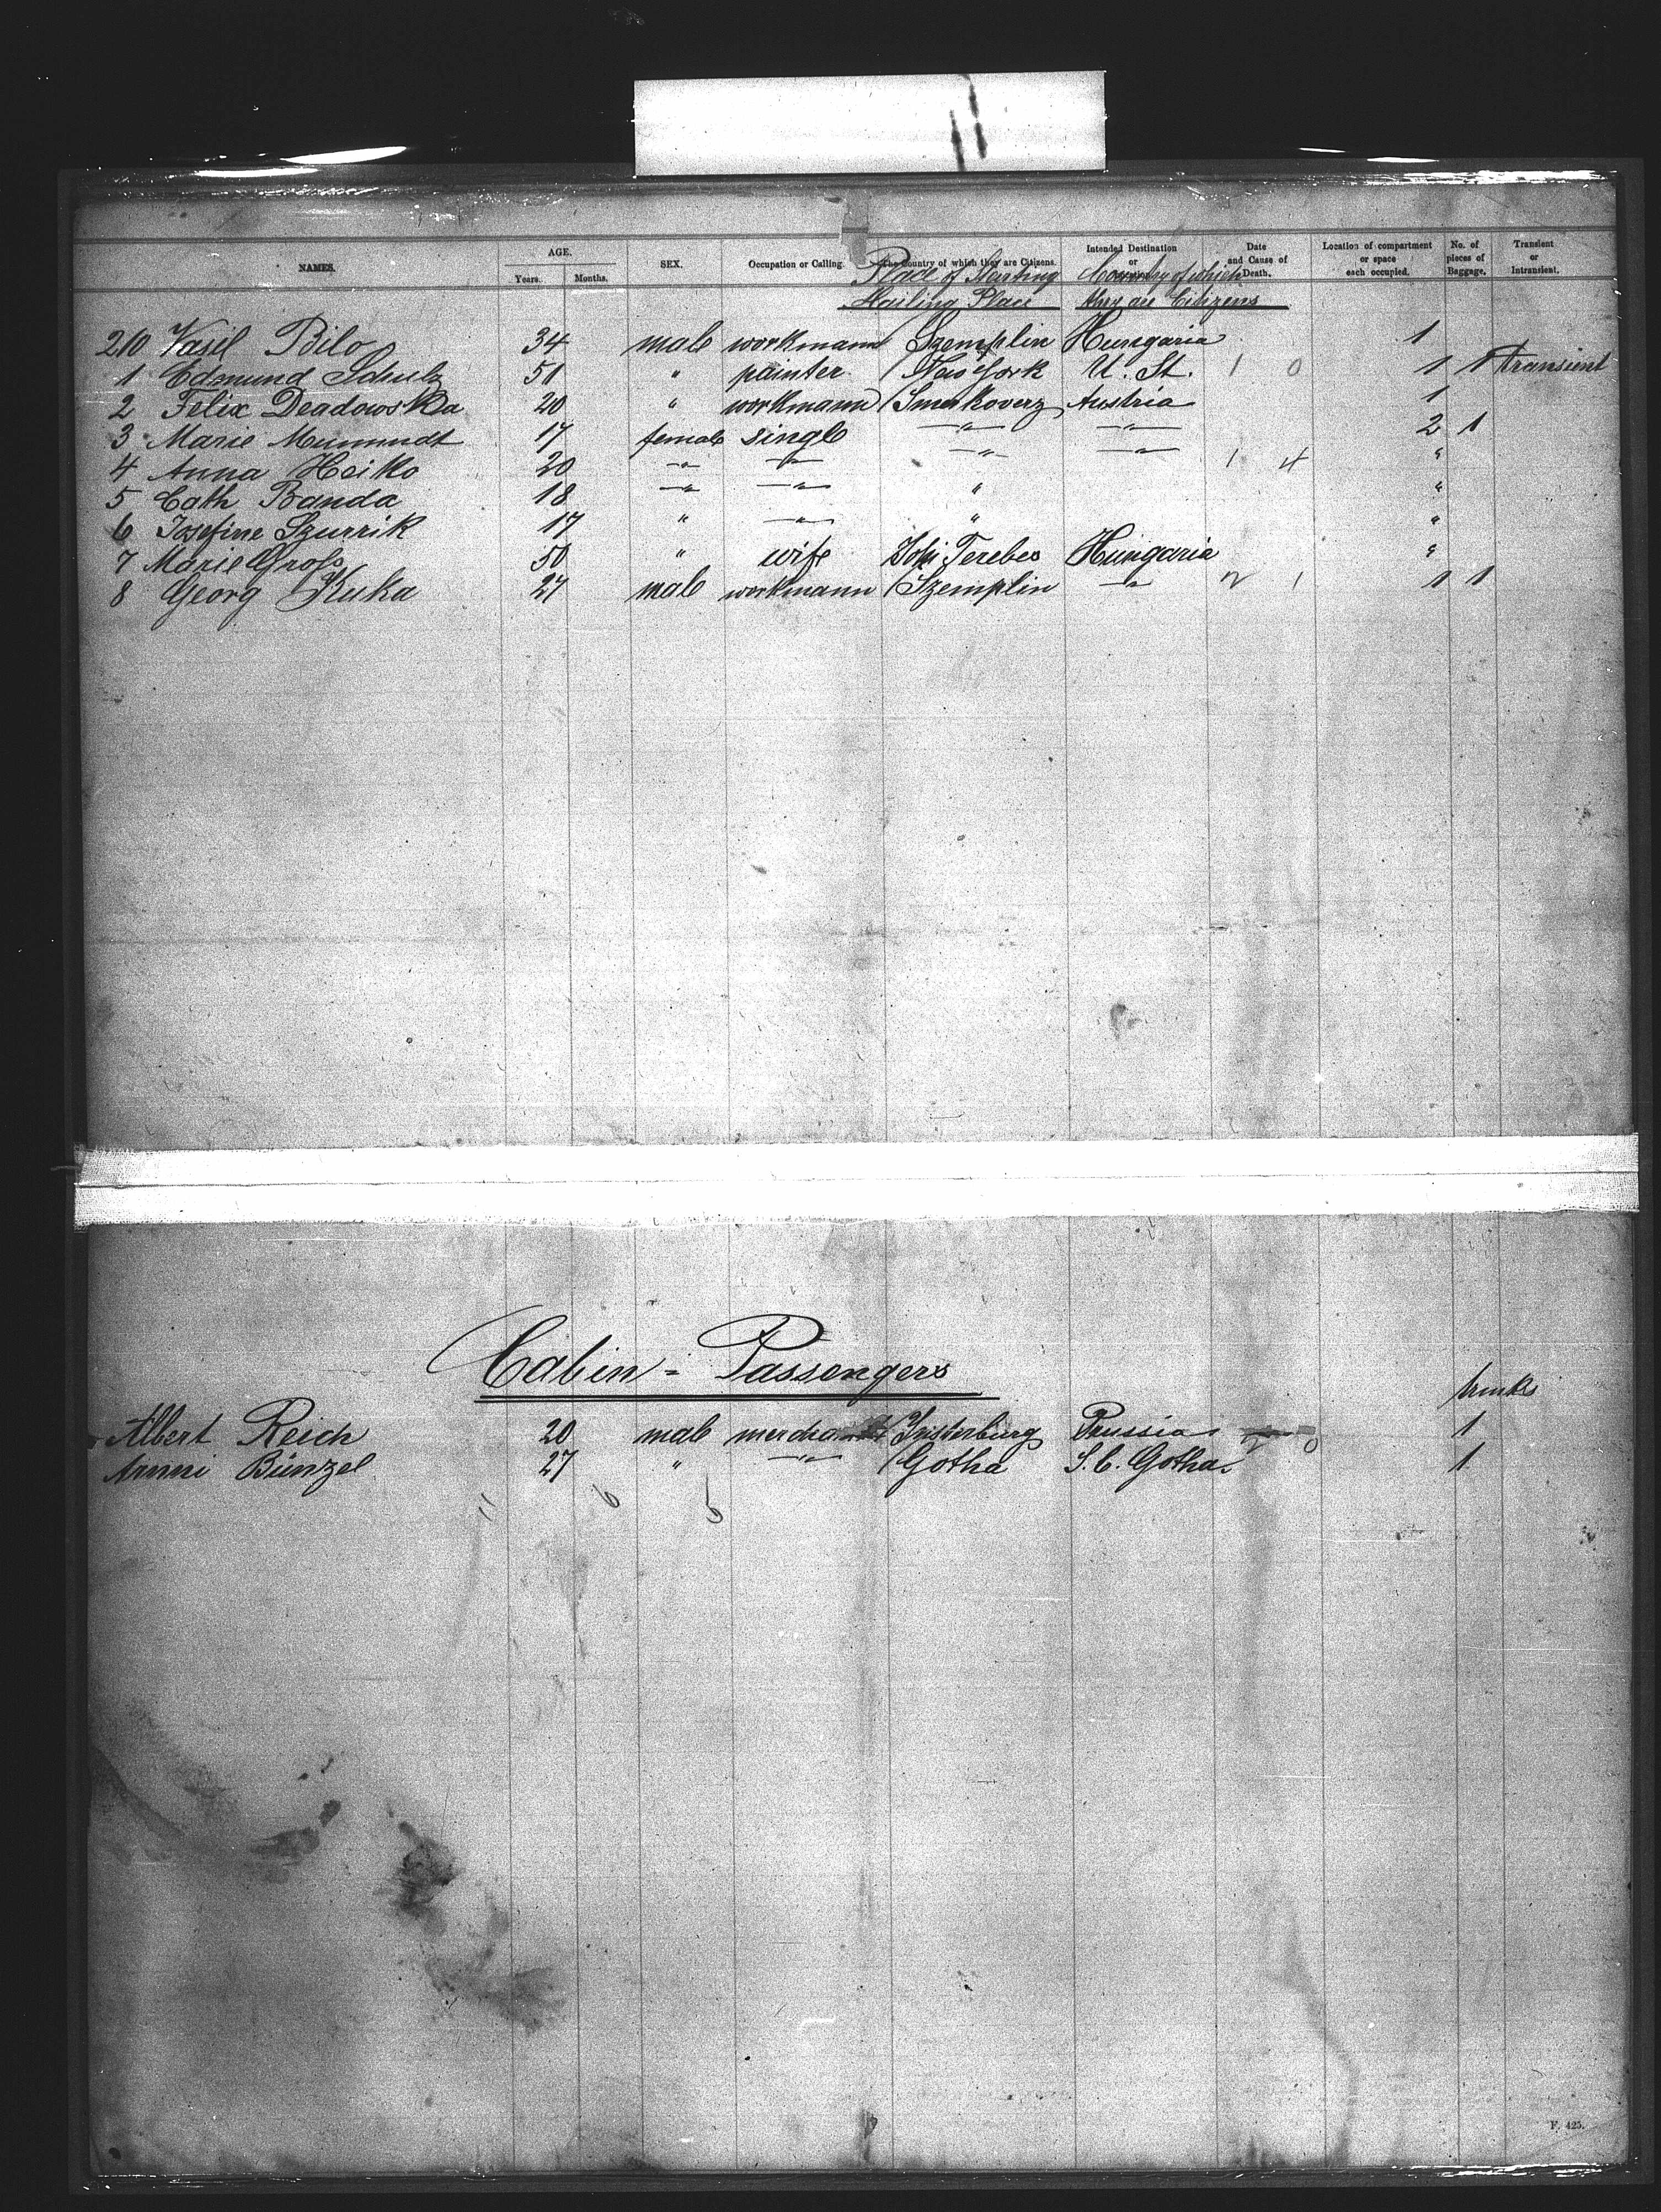 11
NAMES. AGE. Years. Months. SEX. Occupation or Calling. The Country of which they are Citizens. Intended Destination or Date and Cause of Death. Location of compartment or space each occupied. No. of pieces of Baggage. Transient or Intransient.
Place of Starting Country of which
Hailing Place they are Citizens
210 Vasil Bilo 34 male workmann Szemplin Hungaria 1
1 Edmund Schulz 51 " painter New York U. St. 1 0 1 1 transient
2 Felix Deadowska 20 " workmann Smerkoverz Austria 1
3 Marie Mummudt 17 female single —"— —"— 2 1
4 Anna Heiko 20 —"— —"— —"— —"— 1 4 "
5 Cath Banda 18 —"— —"— " "
6 Josefine Szurrik 17 " —"— " "
7 Marie Gross 50 " wife Terebes Hungaria "
8 Georg Kuka 27 male workmann Szemplin —"— 2 1 1 1
Cabin = Passengers
trunks
Albert Reich 20 male merchant Insterburg Prussia 1
Armni Bünzel 27 " —"— Gotha S. C. Gotha. 2 0 1
11 6 6
F. 425.